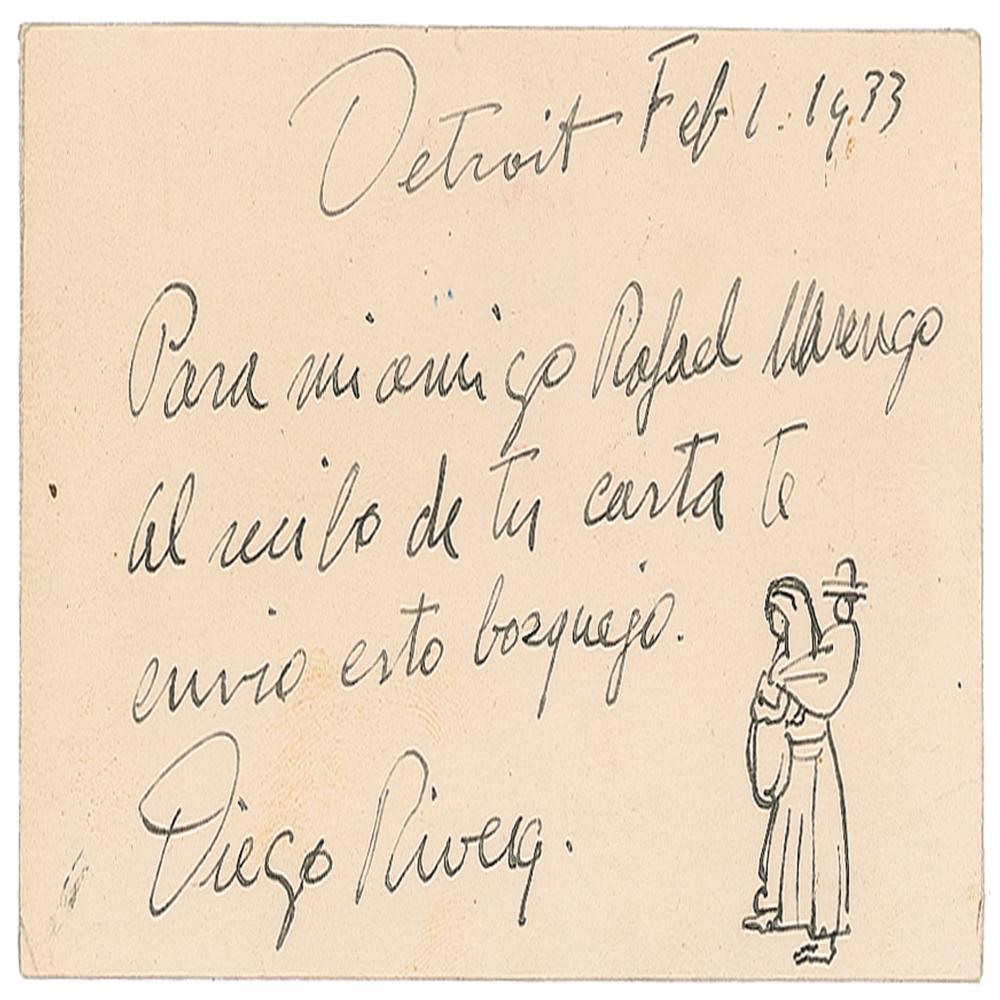 Detroit Feb 1. 1933
Para mi amigo Rafael Marengo
al recibo de tu carta te
envio esto bosquejo.
Diego Rivera.